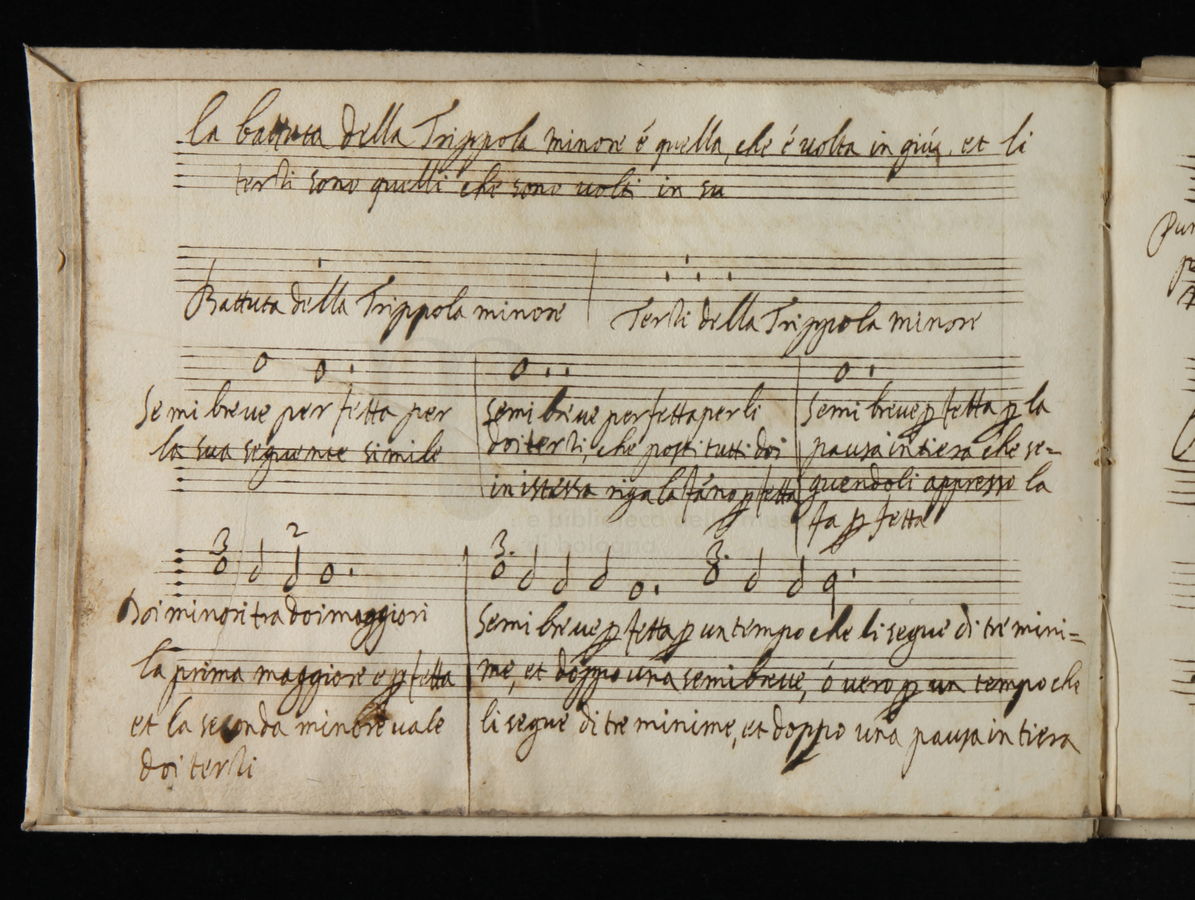 la battuta della Trippola minore é quella, che é volta in giú, et li
terzi sono quelli che sono volti in su
Battuta della Trippola minore
Terzi della Trippola minore
Semibreve perfetta per
la sua seguente simile
Semibreve perfetta per li
doi terzi, che posti tutti doi
in istessa riga la fáno ꝑfetta
Semibreve ꝑfetta ꝑ la
pausa intiera che se=
guendoli appresso la
fa ꝑfetta
3 2
Doi minori tra doi maggiori
la prima maggiore e ꝑfetta
et la seconda minore vale
doi terzi
3. 3.
Semibreve ꝑfetta ꝑ un tempo che li segue di tre mini=
me, et doppo una semibreve, ó vero ꝑ un tempo che
li segue di tre minime, et doppo una pausa intiera